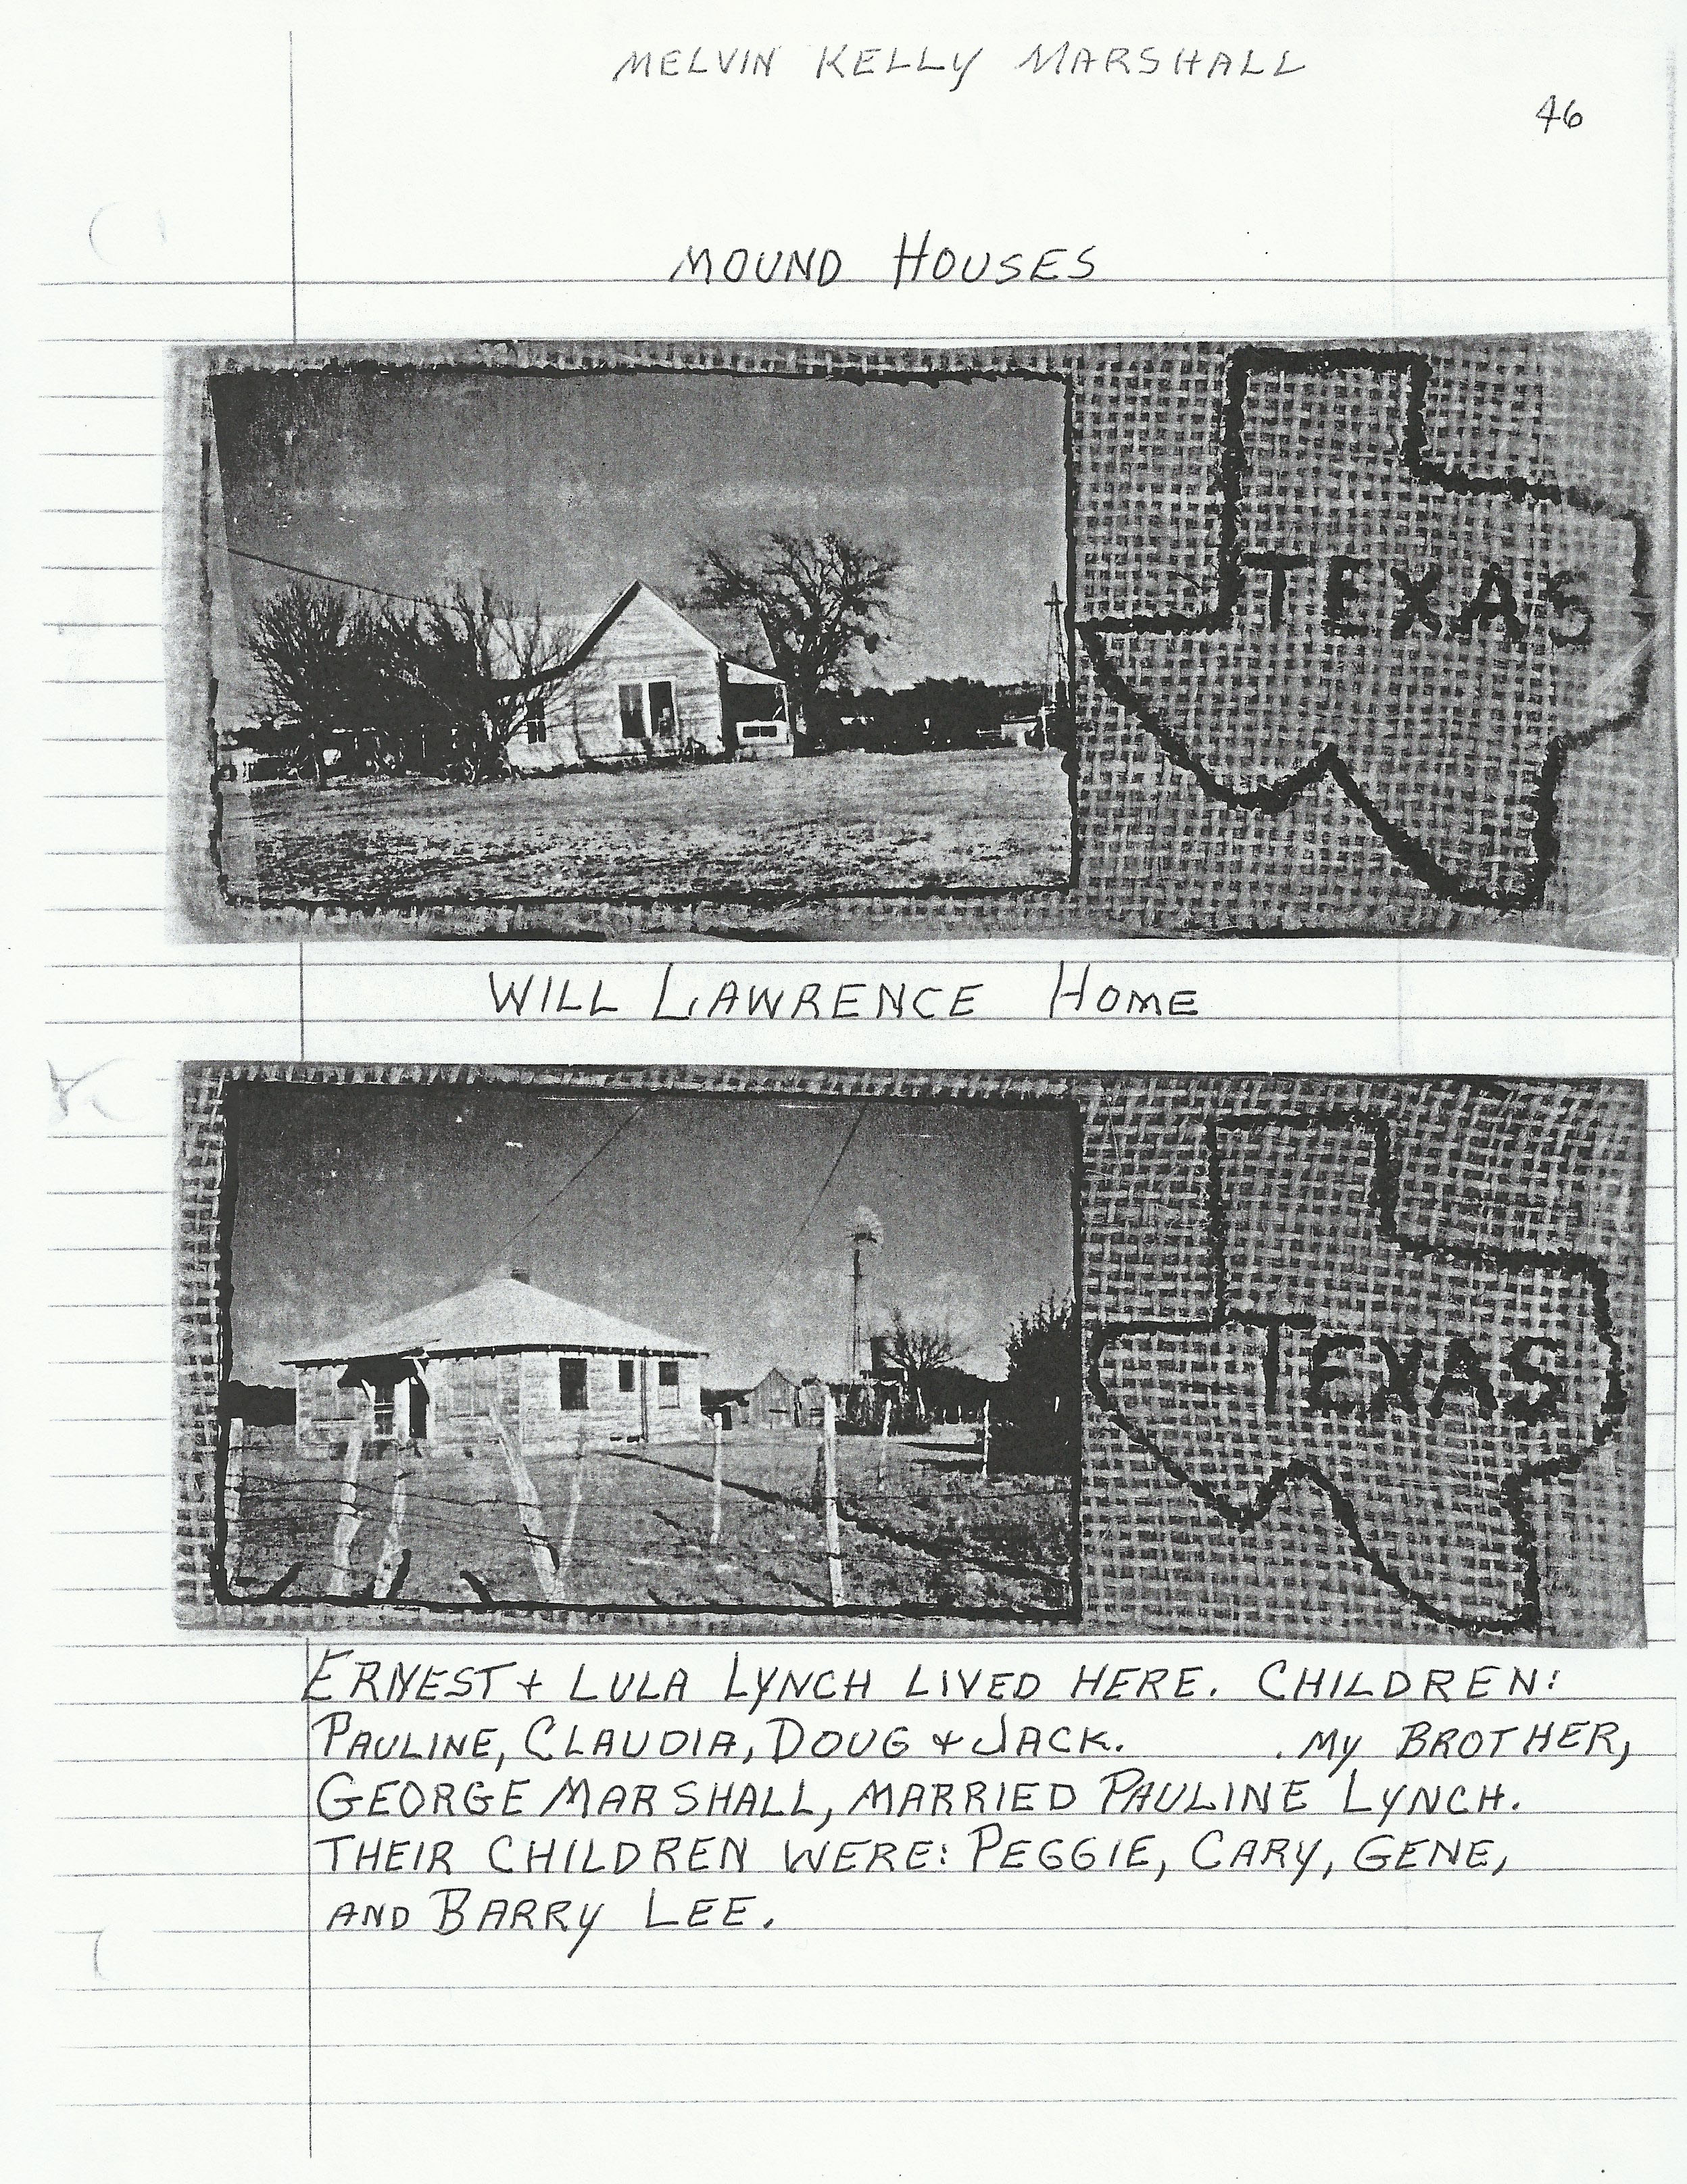 MELVIN KELLY MARSHALL
46
MOUND HOUSES
TEXAS
WILL LAWRENCE HOME
TEXAS
ERNEST + LULA LYNCH LIVED HERE. CHILDREN:
PAULINE, CLAUDIA, DOUG + JACK. . MY BROTHER,
GEORGE MARSHALL, MARRIED PAULINE LYNCH.
THEIR CHILDREN WERE: PEGGIE, CARY, GENE,
AND BARRY LEE.